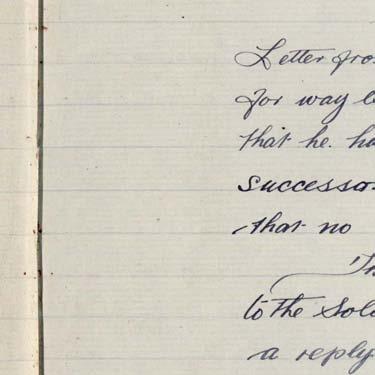 Letter fro
for way le
that he. ha
successor
that no
to the Sol
a reply